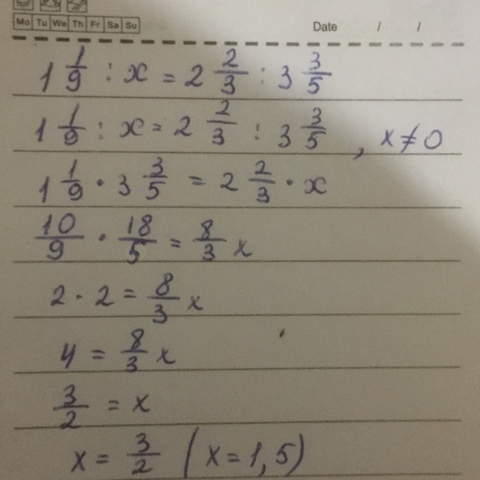 Mo Tu We Th Fr Sa Su
Date / /
1 1/9 : x = 2 2/3 : 3 3/5
1 1/9 : x = 2 2/3 : 3 3/5 , x ≠ 0
1 1/9 · 3 3/5 = 2 2/3 · x
10/9 · 18/5 = 8/3 x
2 · 2 = 8/3 x
4 = 8/3 x
3/2 = x
x = 3/2 (x = 1,5)